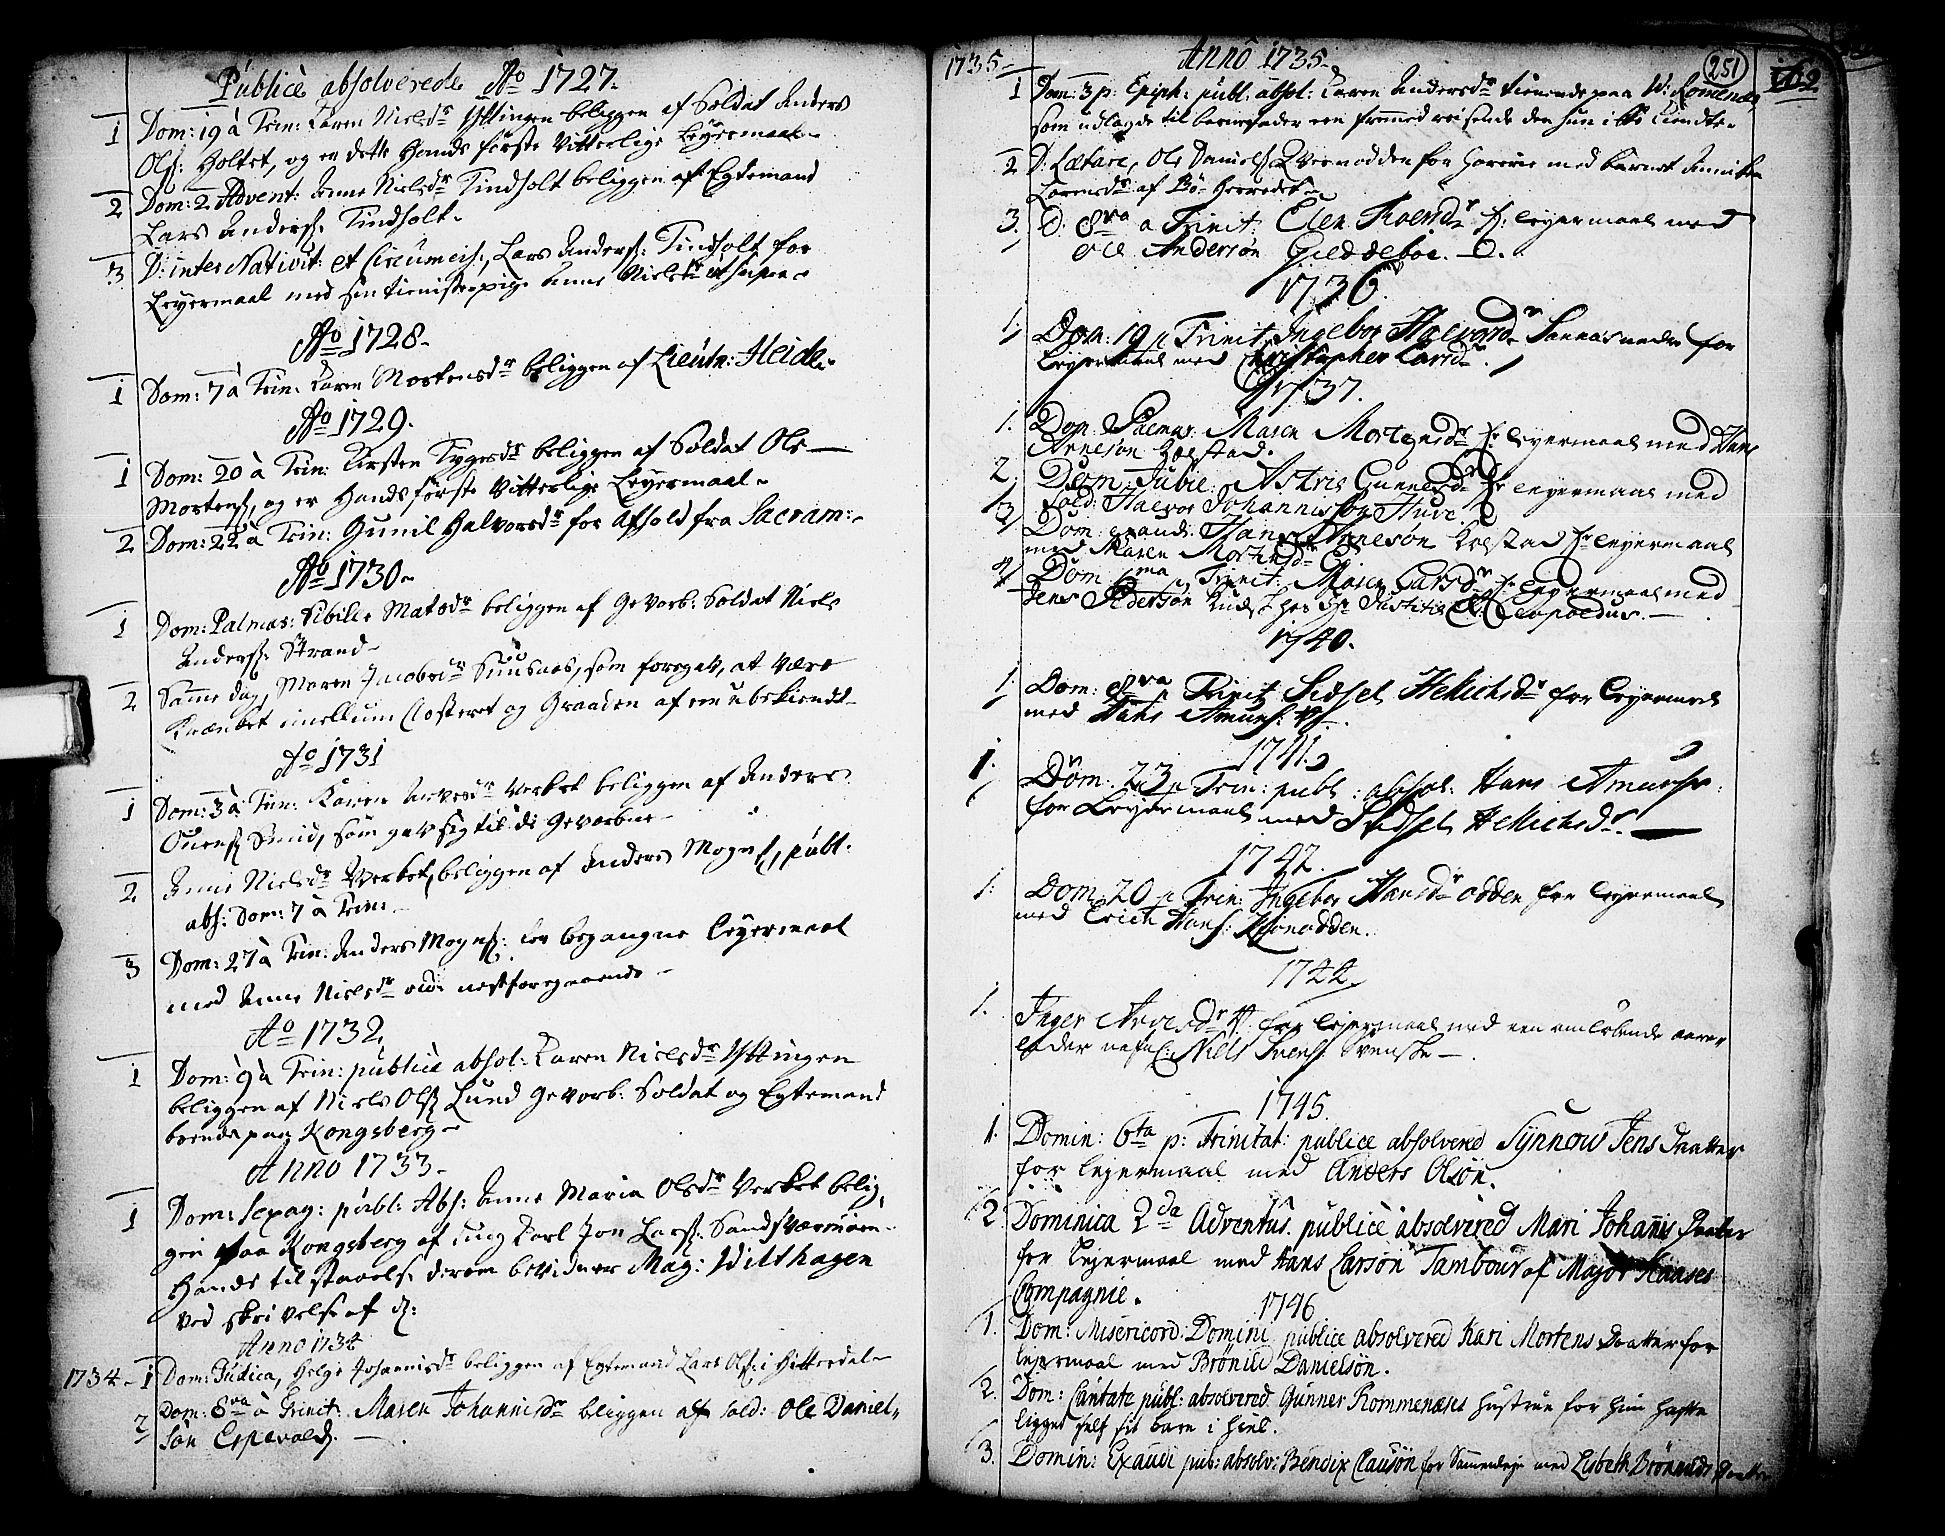 Publicè absolverede Ao 1727.
1 Dom: 19 à Trin: Karen Nielsdr Ytting beliggen af Soldat Anders
Olss: Holtet, og er dette Hands første vitterlige Leyermaal.
2 Dom: 2 Advent: Anne Nielsdr Tindholt beliggen af Egtemand
Lars Anderss: Tindholt.
3 D: inter Nativit: et Circumcis:, Lars Anderss: Tindholt for
Leyermaal med sin tienistepige Anne Nielsdr
Ao 1728.
1 Dom: 7 à Trin: Karen Mortensdr beliggen af Lieutn: Heide.
Ao 1729.
1 Dom: 20 à Trin: Kirsten Tygesdr beliggen af Soldat Ole
Mortens, og er Hands første vitterlige Leyermaal.
2 Dom: 22 à Trin: Gunil Halvorsdr for Afhold fra Sacram:
Ao 1730.
1 Dom: Palmar: Sibille Matsdr beliggen af Gevorb: Soldat Niels
Anderss: Strand.
2 Samme dag, Maren Jacobsdr, som foregav, at være
Krænket imellum Closteret og Graaden af een ubekiendt.
Ao 1731
1 Dom: 3 à Trin: Karen Arvesdr Verket beliggen af Anders
Ouenss Smid, som gav sig til de Gevorbne.
2 Anne Nielsdr Verket, beliggen af Anders Mogns, publ:
abs: Dom: 7 à Trin:
3 Dom: 27 à Trin: Anders Mogns: for begangne Leyermaal
med Anne Nielsdr vide nestforegaaende.
Ao 1732
1 Dom: 9 à Trin: publicè absol: Karen Nielsdr Yttingen
beliggen af Niels Olss Lund Gevorb: Soldat og Egtemand
boende paa Kongsberg.
Anno 1733.
1 Dom: Sexag: publ: Abs: Anne Maria Olsdr Verket belig,
gen paa Kongsberg af ung Karl Jon Larss:
Hands tilstaaelse derom bevidner Mag: Wilthagen
ved skrivelse af d:
Anno 1734
1734 - 1 Dom: Judica, Helge Johannisdr beliggen af Egtemand Lars Olss: i Hitterdal
2 Dom: 8va à Trinit: Maren Johannisdr beliggen af sold: Ole Daniel,
søn Espevold.
1735 - Anno 1735. 251
1 Dom: 3 p: Epiph: publ: absol: Karen Andersdr tienende paa W: Romenæs,
som udlagde til barnefader een fremmed reisende den hun ikke kiendte.
2 D: Lætare, Ole Daniels for Horerie med
Larsdr af Bø Herredet.
3. D: 8va a Trinit: Elen Roersdr for leyermaal med
Ole Andersøn Gieddeboe.
1736
1 Dom: 19 p Trinit: Ingebor Halvordr for
leyermaal med Christopher Larsen.
1737.
1. Dom Palmar. Maren Mortensdr for leyermaal med Hans
Arnesøn Kolstad.
2 Dom: Jubil: Astris Gunnersdr for leyermaal med
Sold: Halvor Johannissøn Huve.
3 Dom: exaudi: Hans Arnesøn Kolstad for leyermaal
med Maren Mortensdr
4 Dom: 6ma p Trinit: Maren Larsdr for leyermaal med
Jens Pedersøn Kudsk hos Hr Justitie R: Leopoldus.
1740.
1 Dom: 8va p Trinit Sidsel Hellichsdr for leyermaal
med Hans Amunss:
1741.
1. Dom: 23 p Trin: publ: absol: Hans Amunss
for Leyermaal med Sidsel Hellichsdr.
1742.
1. Dom: 20 p Trin: Ingebor Hansdr Odden for leyermaal
med Erich Hanss:
1744.
1. Inger Arvesdr for leyermaal med een omløbende
nafnl: Niels Svenss: Svenske.
1745.
1. Domin: 6ta p: Trinitat: publice absolvered Synnow Jens Daatter
for lejermaal med Anders Olsøn.
2 Dominica 2da Adventus. publice absolvered Mari Johannis Daatter
for lejermaal med Hans Larsøn Tambour af Major Kaases
Compagnie.
1746
1. Dom: Misericord: Domini publice absolvered Kari Mortens Daatter for
lejermaal med Brønild Danielsøn.
2. Dom: Cantate publ: absolvered Gunner Rommenæses Hustrue for hun hafde
ligget self sit barn i hiel.
3. Domin: Exaudi pub: absolv: Bendix Clausøn for Sammenleje med Lisbeth Brønilds Daatter